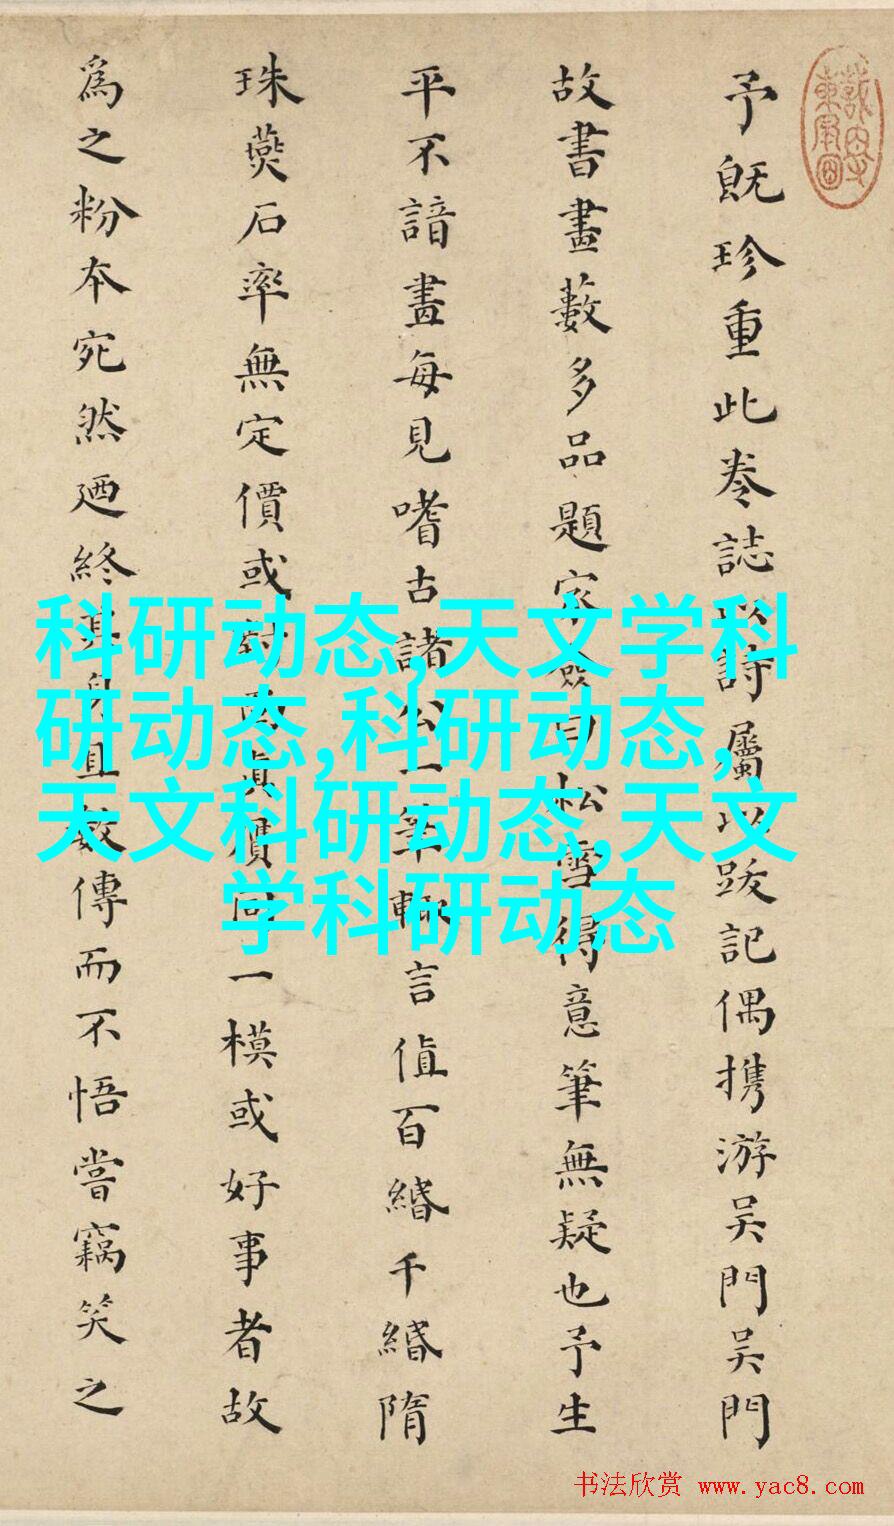 予既珍重此卷誌以詩屬以跋記偶携游吳門吳門
故書畫藪多品題家僉曰松雪得意筆無疑也予生
平不諳畫每見嗜古諸公一筆輒言值百緡千緡隋
珠燕石率無定價或真同一模或好事者故
為之粉本宛然廼終其身且數傳而不悟嘗竊笑之
科研动态,天文学科
研动态,科研动态,
天文科研动态,天文
学科研动态
书法欣赏 www.yac8.com